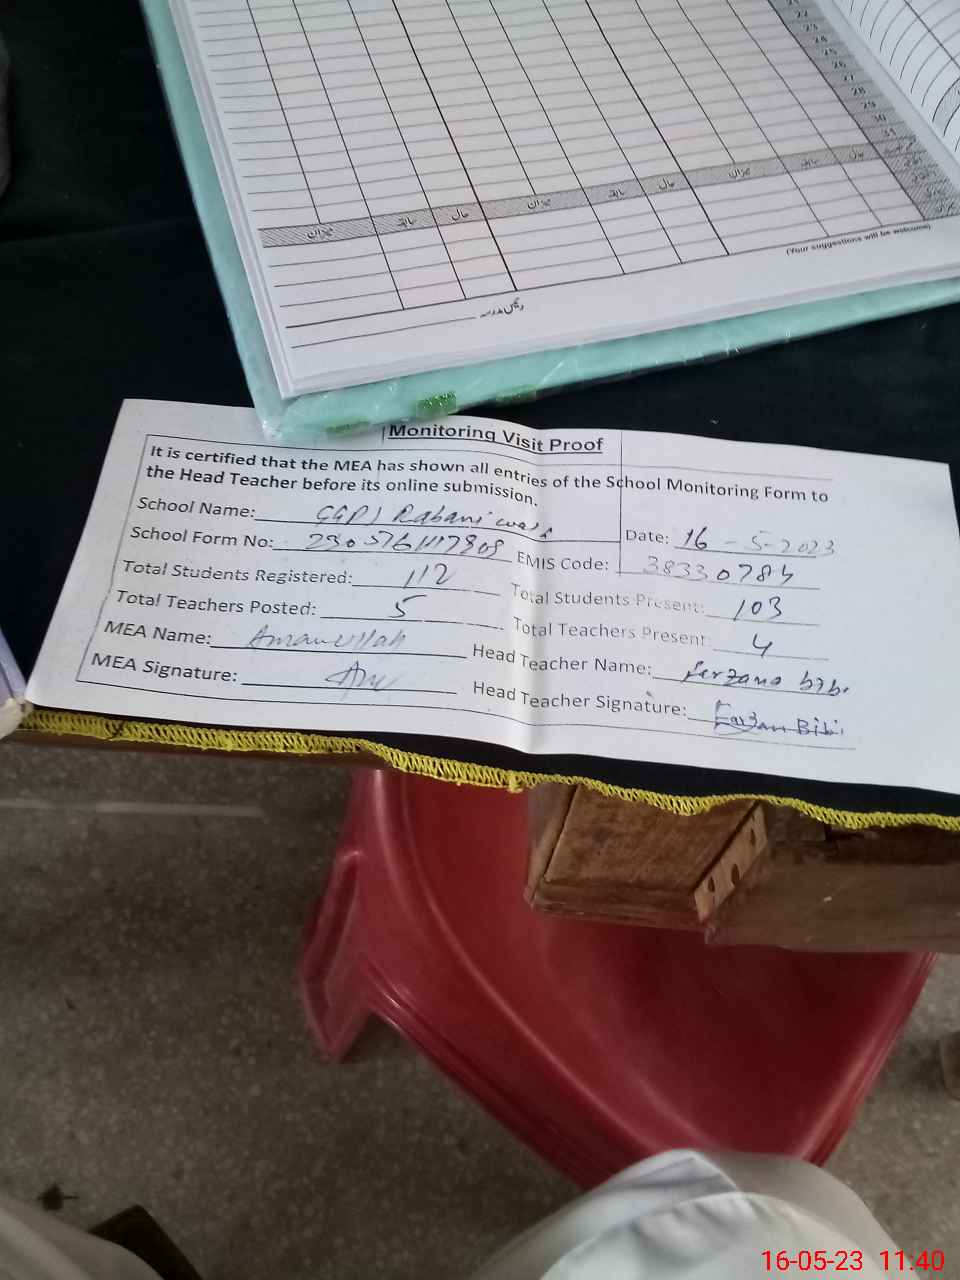 22
23
24
25
26
27
28
29
30
31
میزان سابقہ حال میزان سابقہ حال میزان سابقہ حال
(Your suggestions will be welcome)
رئیس مدرسہ
Monitoring Visit Proof
It is certified that the MEA has shown all entries of the School Monitoring Form to
the Head Teacher before its online submission.
School Name: GGPS Rabani wala
Date: 16-5-2023
School Form No:
EMIS Code: 38330784
Total Students Registered: 112
Total Students Present: 103
Total Teachers Posted: 5
Total Teachers Present: 4
MEA Name: Amanullah
Head Teacher Name: Ferzana bibi
MEA Signature:
Head Teacher Signature: Farzan Bibi
16-05-23 11:40